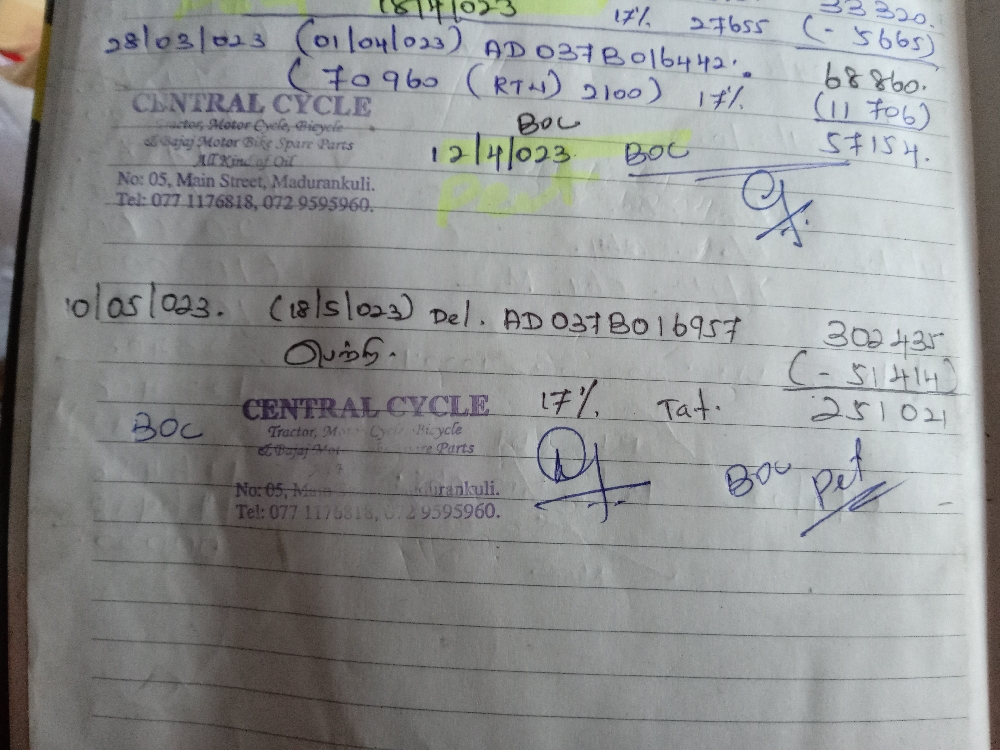 18/4/023 17% 27655 33320.
(- 5665)
28/03/023 (01/04/023) AD037B016442.
(70960 (RTN) 2100) 17% 68860.
(11706)
57154.
BOC
12/4/023. BOC
CENTRAL CYCLE
Tractor, Motor Cycle, Bicycle
& Bajaj Motor Bike Spare Parts
All Kind of Oil
No: 05, Main Street, Madurankuli.
Tel: 077 1176818, 072 9595960.
10/05/023. (18/5/023) Del. AD037B016957 302435
(- 51414)
17% Tat. 251021
BOC
CENTRAL CYCLE
Tractor, Motor Cycle, Bicycle
& Bajaj Mot re Parts
No: 05, Main urankuli.
Tel: 077 1176818, 072 9595960.
BOC